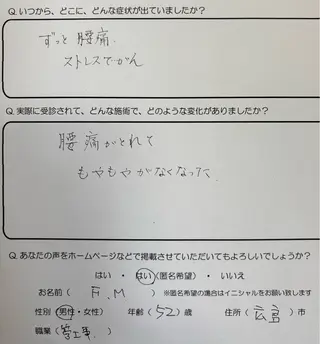 Q. いつから、どこに、どんな症状が出ていましたか？
ずっと 腰痛.
ストレスでがん
Q. 実際に受診されて、どんな施術で、どのような変化がありましたか？
腰痛がとれて
もやもやがなくなった
Q. あなたの声をホームページなどで掲載させていただいてもよろしいでしょうか？
はい ・ はい(匿名希望) ・ いいえ
お名前 ( F.M ) ※匿名希望の場合はイニシャルをお願い致します
性別 (男性・女性) 年齢 (52) 歳 住所 (広島) 市
職業 ( )